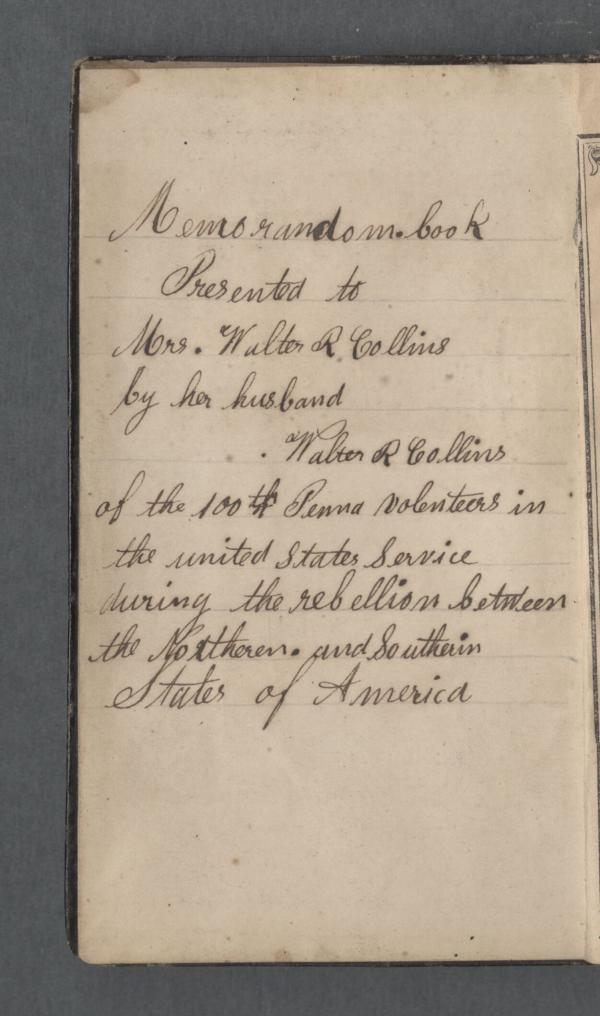 Memorandom.book
Presented to
Mrs. Walter R Collins
by her husband
. Walter R Collins
of the 100th Penna volenteers in
the united States Service
during the rebellion between
the Northeren. and Southern
States of America